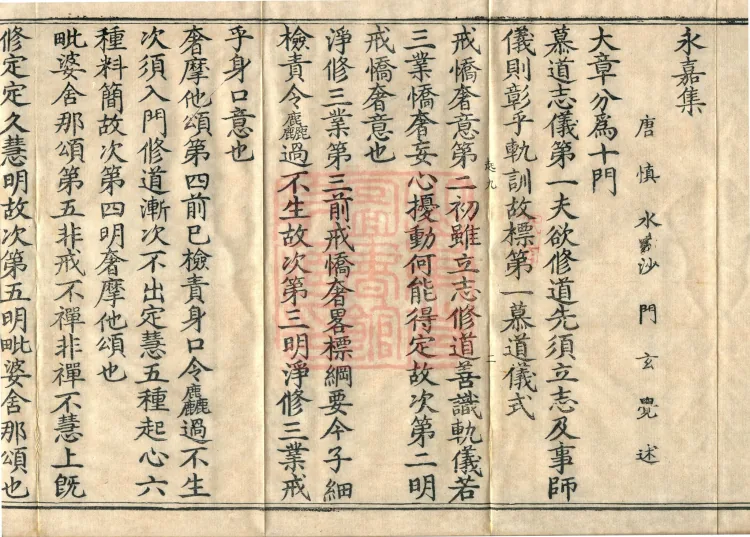 永嘉集
唐慎水沙門玄覺述
大章分爲十門
慕道志儀第一夫欲修道先須立志及事師
儀則彰乎軌訓故標第一慕道儀式
起九 二
戒憍奢意第二初雖立志修道善識軌儀若
三業憍奢妄心擾動何能得定故次第二明
戒憍奢意也
淨修三業第三前戒憍奢畧標綱要今子細
檢責令麤過不生故次第三明淨修三業戒
乎身口意也
奢摩他頌第四前已檢責身口令麤過不生
次須入門修道漸次不出定慧五種起心六
種料簡故次第四明奢摩他頌也
毗婆舍那頌第五非戒不禪非禪不慧上旣
修定定久慧明故次第五明毗婆舍那頌也